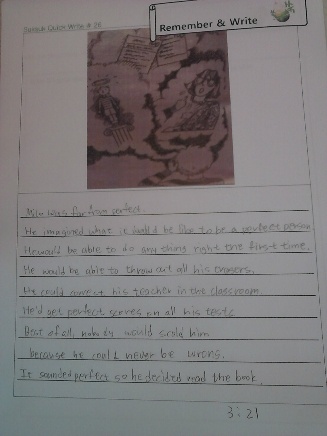 Remember & Write
Quick Write # 26
Milo was far from perfect.
He imagined what it would be like to be a perfect person
He would be able to do any thing right the first time.
He would be able to throw out all his erasers.
He could correct his teacher in the classroom.
He'd get perfect scores on all his tests
Best of all, nobody would scold him
because he could never be wrong.
It sounded perfect so he decided read the book.
3:21